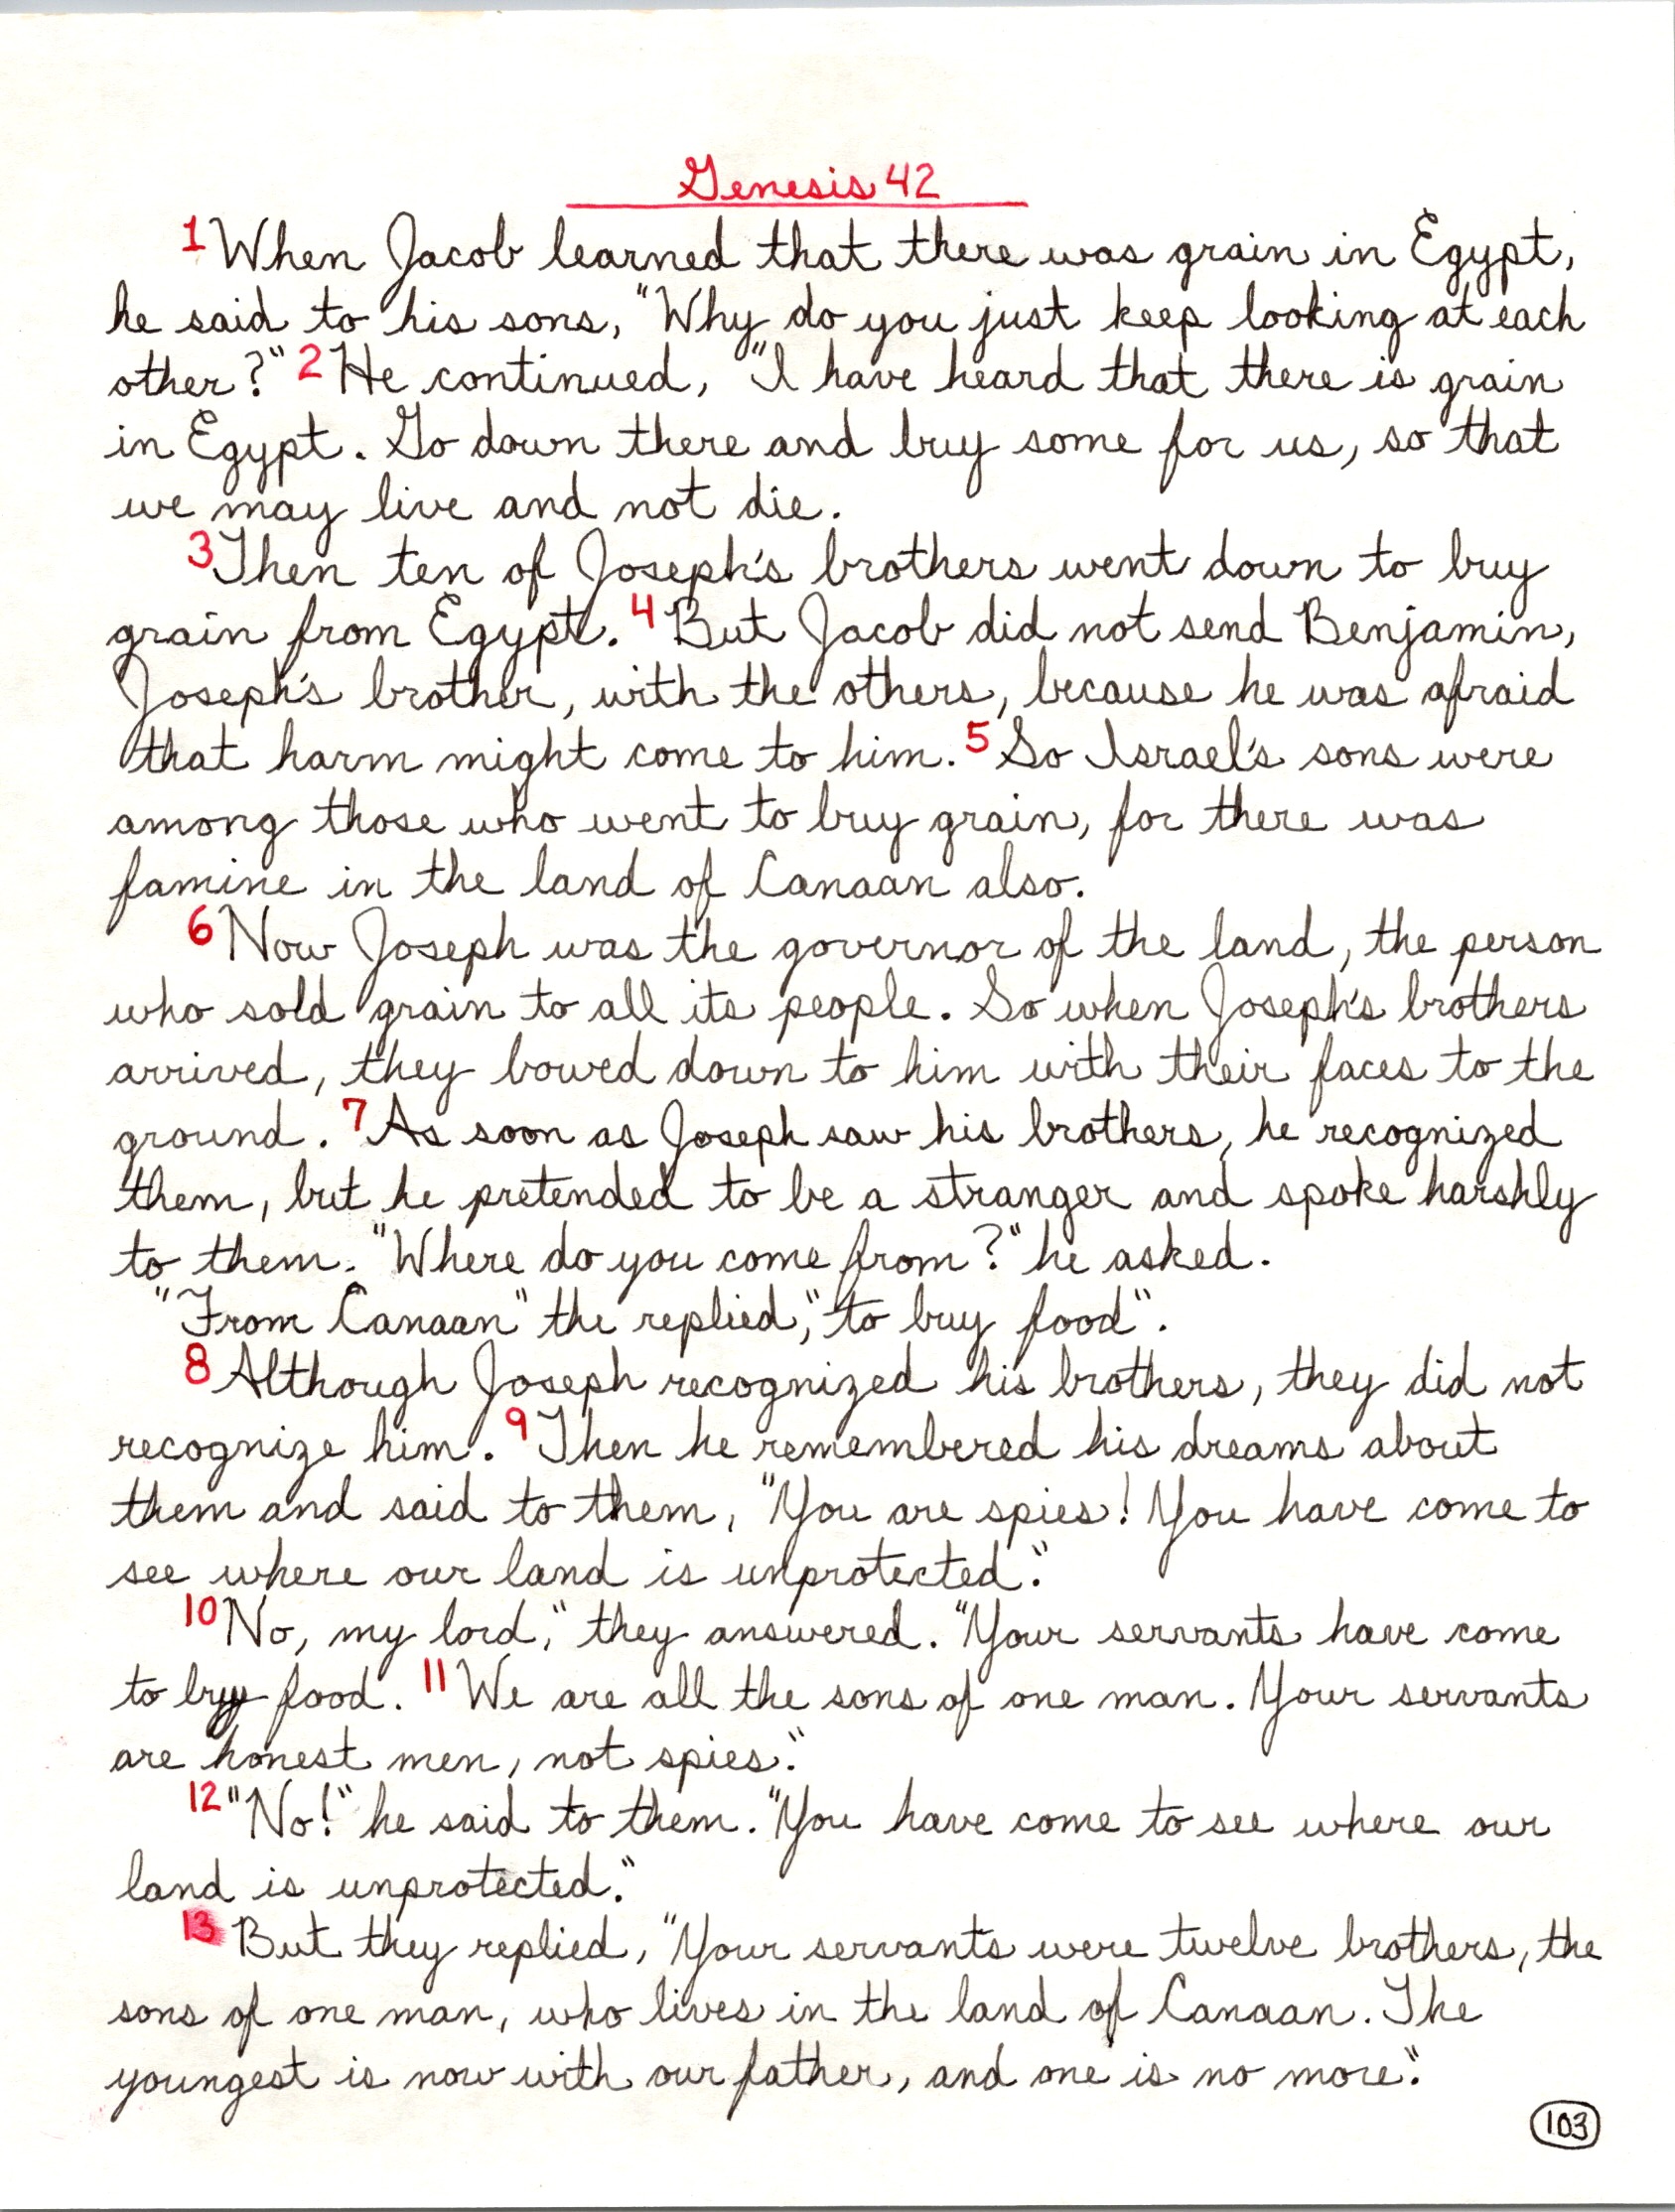 Genesis 42
1 When Jacob learned that there was grain in Egypt,
he said to his sons, "Why do you just keep looking at each
other?" 2 He continued, "I have heard that there is grain
in Egypt. Go down there and buy some for us, so that
we may live and not die.
3 Then ten of Joseph's brothers went down to buy
grain from Egypt. 4 But Jacob did not send Benjamin,
Joseph's brother, with the others, because he was afraid
that harm might come to him. 5 So Israel's sons were
among those who went to buy grain, for there was
famine in the land of Canaan also.
6 Now Joseph was the governor of the land, the person
who sold grain to all its people. So when Joseph's brothers
arrived, they bowed down to him with their faces to the
ground. 7 As soon as Joseph saw his brothers, he recognized
them, but he pretended to be a stranger and spoke harshly
to them. "Where do you come from?" he asked.
"From Canaan" the replied," to buy food".
8 Although Joseph recognized his brothers, they did not
recognize him. 9 Then he remembered his dreams about
them and said to them, "You are spies! You have come to
see where our land is unprotected."
10 No, my lord," they answered. "Your servants have come
to buy food. 11 We are all the sons of one man. Your servants
are honest men, not spies."
12 "No!" he said to them. "You have come to see where our
land is unprotected."
13 But they replied, "Your servants were twelve brothers, the
sons of one man, who lives in the land of Canaan. The
youngest is now with our father, and one is no more."
103